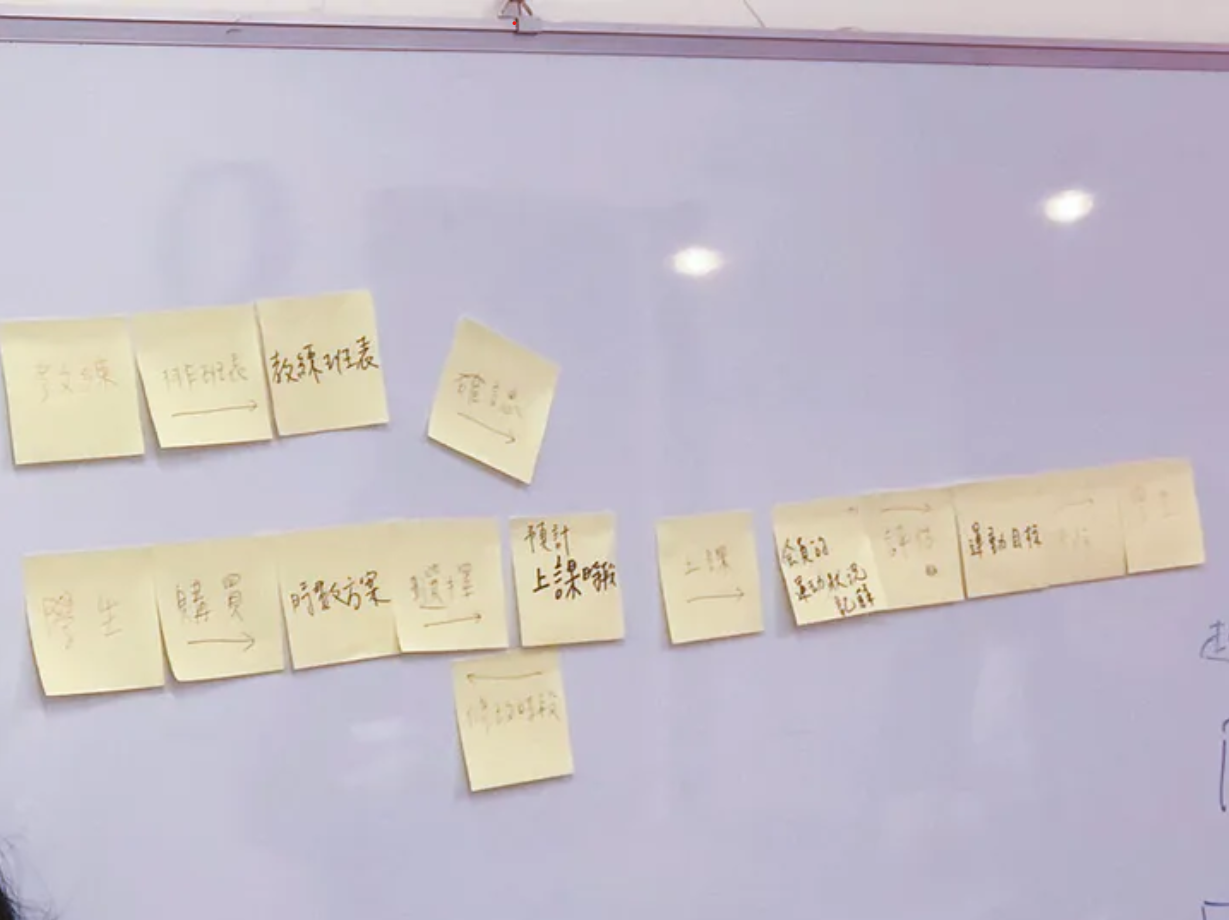 教練
排班表
教練班表
確認
學生
購買
時數方案
選擇
預計
上課時段
上課
會員的
運動狀況
記錄
評估
運動目標
學生
修改時段